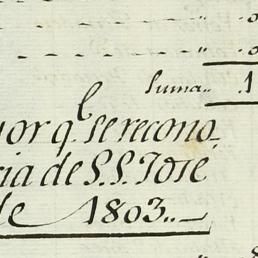 Suma.. 1
or q.l se recono_
cia de S.S. José
de 1803..